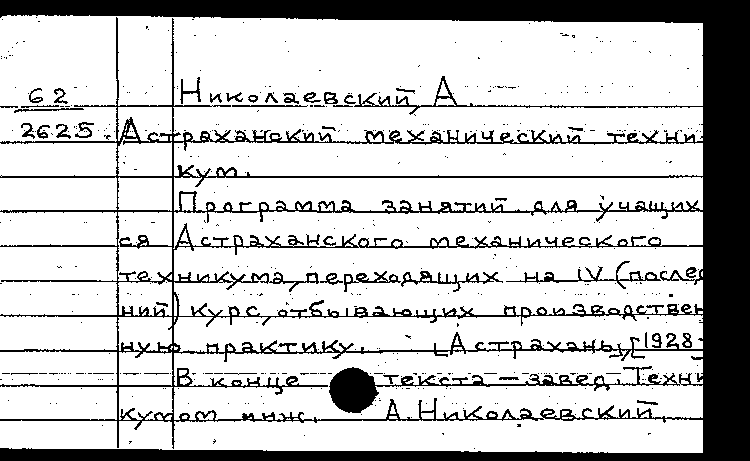 62 Николаевский, А.
2625. Астраханский механический техни-
кум.
Программа занятий для учащих
ся Астраханского механического
техникума, переходящих на IV (послед
ний) курс, отбывающих производствен
ную практику. [Астрахань], [1928-
В конце текста — завед. Техни
кумом инж. А. Николаевский.